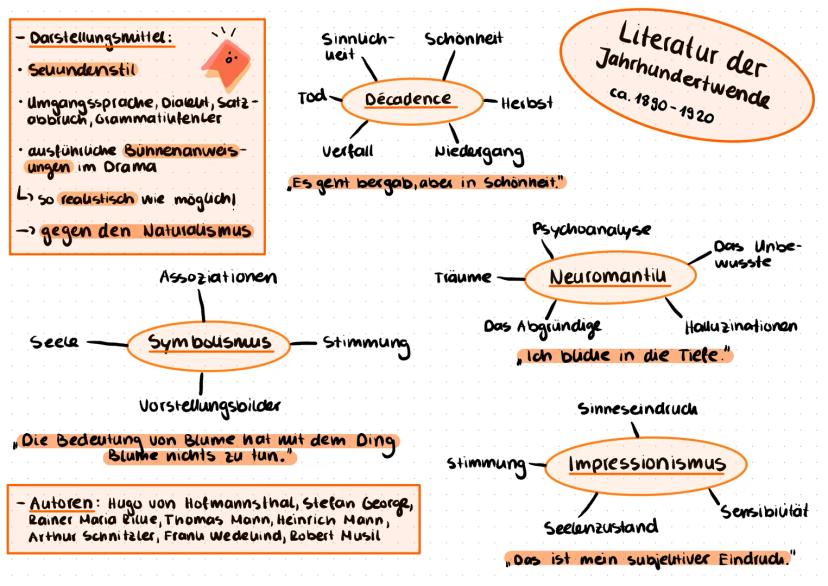 Literatur der
Jahrhundertwende
ca. 1890-1920
- Darstellungsmittel:
· Sekundenstil
· Umgangssprache, Dialekt, Satz-
abbruch, Grammatikfehler
· ausführliche Bühnenanweis-
ungen im Drama
↳ so realistisch wie möglich!
→ gegen den Naturalismus
Décadence
Sinnlich-
keit
Schönheit
Tod
Herbst
Verfall
Niedergang
„Es geht bergab, aber in Schönheit."
Neuromantik
Psychoanalyse
Das Unbe-
wusste
Träume
Das Abgründige
Halluzinationen
„Ich blicke in die Tiefe."
Symbolismus
Assoziationen
Seele
Stimmung
Vorstellungsbilder
„Die Bedeutung von Blume hat mit dem Ding
Blume nichts zu tun."
Impressionismus
Sinneseindruck
Stimmung
Seelenzustand
Sensibilität
„Das ist mein subjektiver Eindruck."
- Autoren: Hugo von Hofmannsthal, Stefan George,
Rainer Maria Rilke, Thomas Mann, Heinrich Mann,
Arthur Schnitzler, Frank Wedekind, Robert Musil